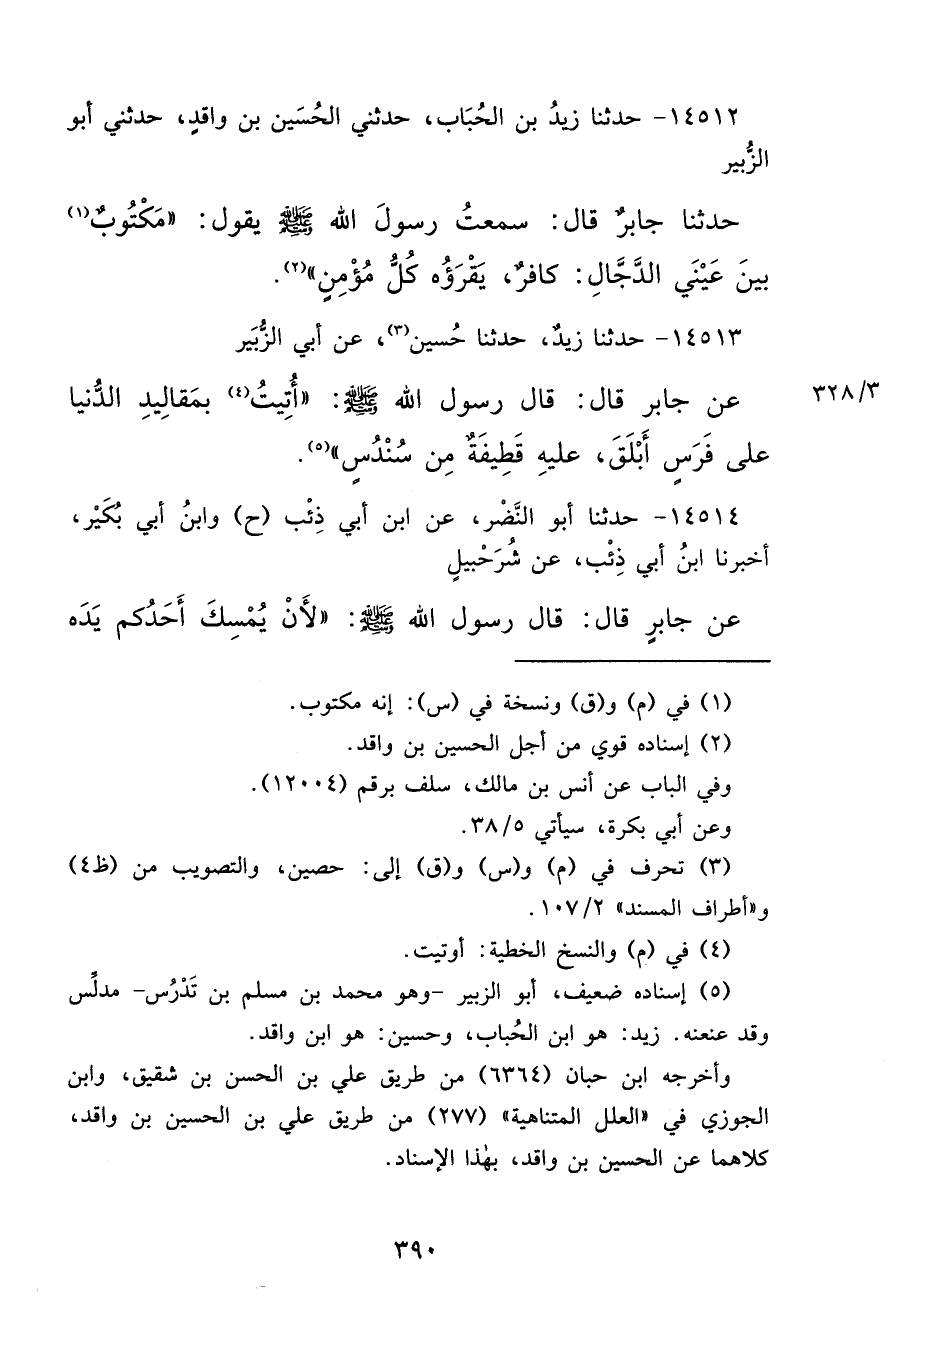 ١٤٥١٢- حدثنا زيدُ بن الحُبَاب، حدثني الحُسَين بن واقدٍ، حدثني أبو
الزُّبير
حدثنا جابرٌ قال: سمعتُ رسولَ الله ﷺ يقول: «مَكْتُوبٌ(١)
بينَ عَيْنَي الدَّجَّالِ: كافرٌ، يَقْرَؤُه كُلُّ مُؤْمِنٍ»(٢).
١٤٥١٣- حدثنا زيدٌ، حدثنا حُسين(٣)، عن أبي الزُّبَير
٣٢٨/٣
عن جابر قال: قال رسول الله ﷺ: «أُتِيتُ(٤) بمَقاليدِ الدُّنيا
على فَرَسٍ أَبْلَقَ، عليهِ قَطِيفَةٌ مِن سُنْدُسٍ»(٥).
١٤٥١٤- حدثنا أبو النَّضْر، عن ابن أبي ذِئْب (ح) وابنُ أبي بُكَيْر،
أخبرنا ابنُ أبي ذِئْب، عن شُرَحْبيلٍ
عن جابرٍ قال: قال رسول الله ﷺ: «لأَنْ يُمْسِكَ أَحَدُكم يَدَه
(١) في (م) و(ق) ونسخة في (س): إنه مكتوب.
(٢) إسناده قوي من أجل الحسين بن واقد.
وفي الباب عن أنس بن مالك، سلف برقم (١٢٠٠٤).
وعن أبي بكرة، سيأتي ٣٨/٥.
(٣) تحرف في (م) و(س) و(ق) إلى: حصين، والتصويب من (ظ٤)
و«أطراف المسند» ١٠٧/٢.
(٤) في (م) والنسخ الخطية: أوتيت.
(٥) إسناده ضعيف، أبو الزبير -وهو محمد بن مسلم بن تَدْرُس- مدلِّس
وقد عنعنه. زيد: هو ابن الحُباب، وحسين: هو ابن واقد.
وأخرجه ابن حبان (٦٣٦٤) من طريق علي بن الحسن بن شقيق، وابن
الجوزي في «العلل المتناهية» (٢٧٧) من طريق علي بن الحسين بن واقد،
كلاهما عن الحسين بن واقد، بهٰذا الإسناد.
٣٩٠